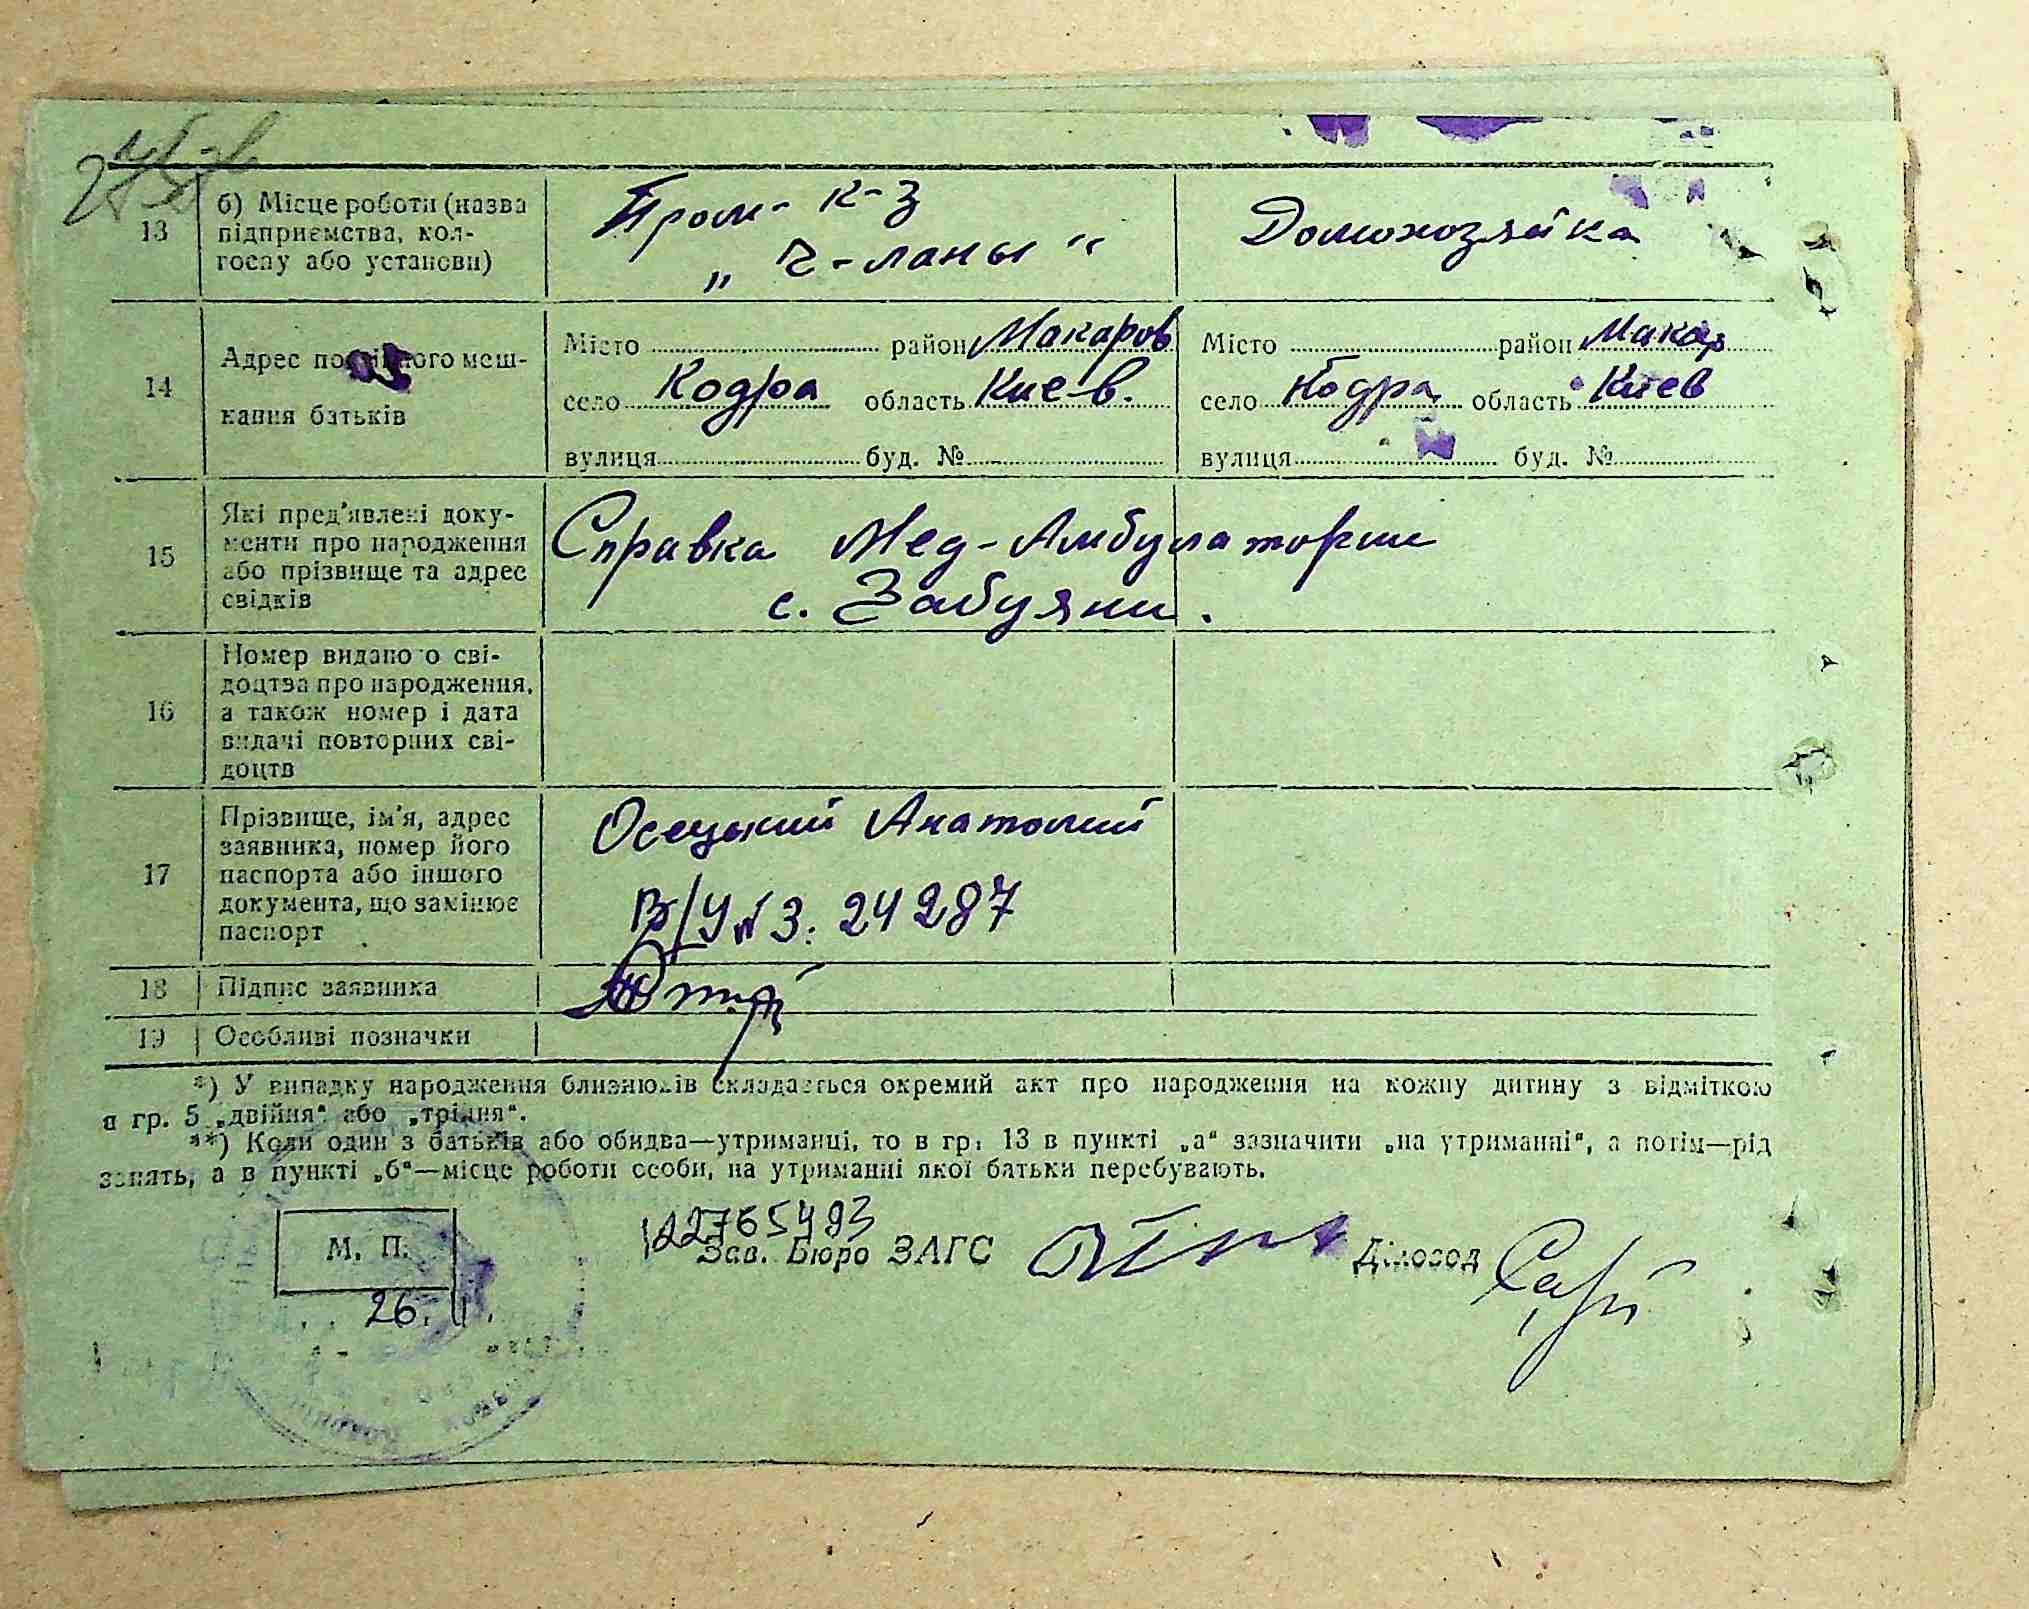 13
б) Місце роботи (назва
підприємства, кол-
госпу або установи)
Пром- к-з
„ Ч-ланы “
Домохозяйка
14
Адрес постійного меш-
кання батьків
Місто район Макаров
село Кодра область Киев.
вулиця буд. №
Місто район Макар
село Кодра область Киев
вулиця буд. №
15
Які пред'явлені доку-
менти про народження
або прізвище та адрес
свідків
Справка Мед-Амбулатории
с. Забуяни.
16
Номер виданого сві-
доцтва про народження,
а також номер і дата
видачі повторних сві-
доцтв
17
Прізвище, ім'я, адрес
заявника, номер його
паспорта або іншого
документа, що замінює
паспорт
Осецький Анатолий
В/У № 3: 24287
18
Підпис заявника
19
Особливі позначки
*) У випадку народження близнюків складається окремий акт про народження на кожну дитину з відміткою
в гр. 5 „двійня“ або „трійня“.
**) Коли один з батьків або обидва—утриманці, то в гр. 13 в пункті „а“ зазначити „на утриманні“, а потім—рід
занять, а в пункті „б“—місце роботи особи, на утриманні якої батьки перебувають.
М. П.
122765493
Зав. Бюро ЗАГС
Діловод
26.